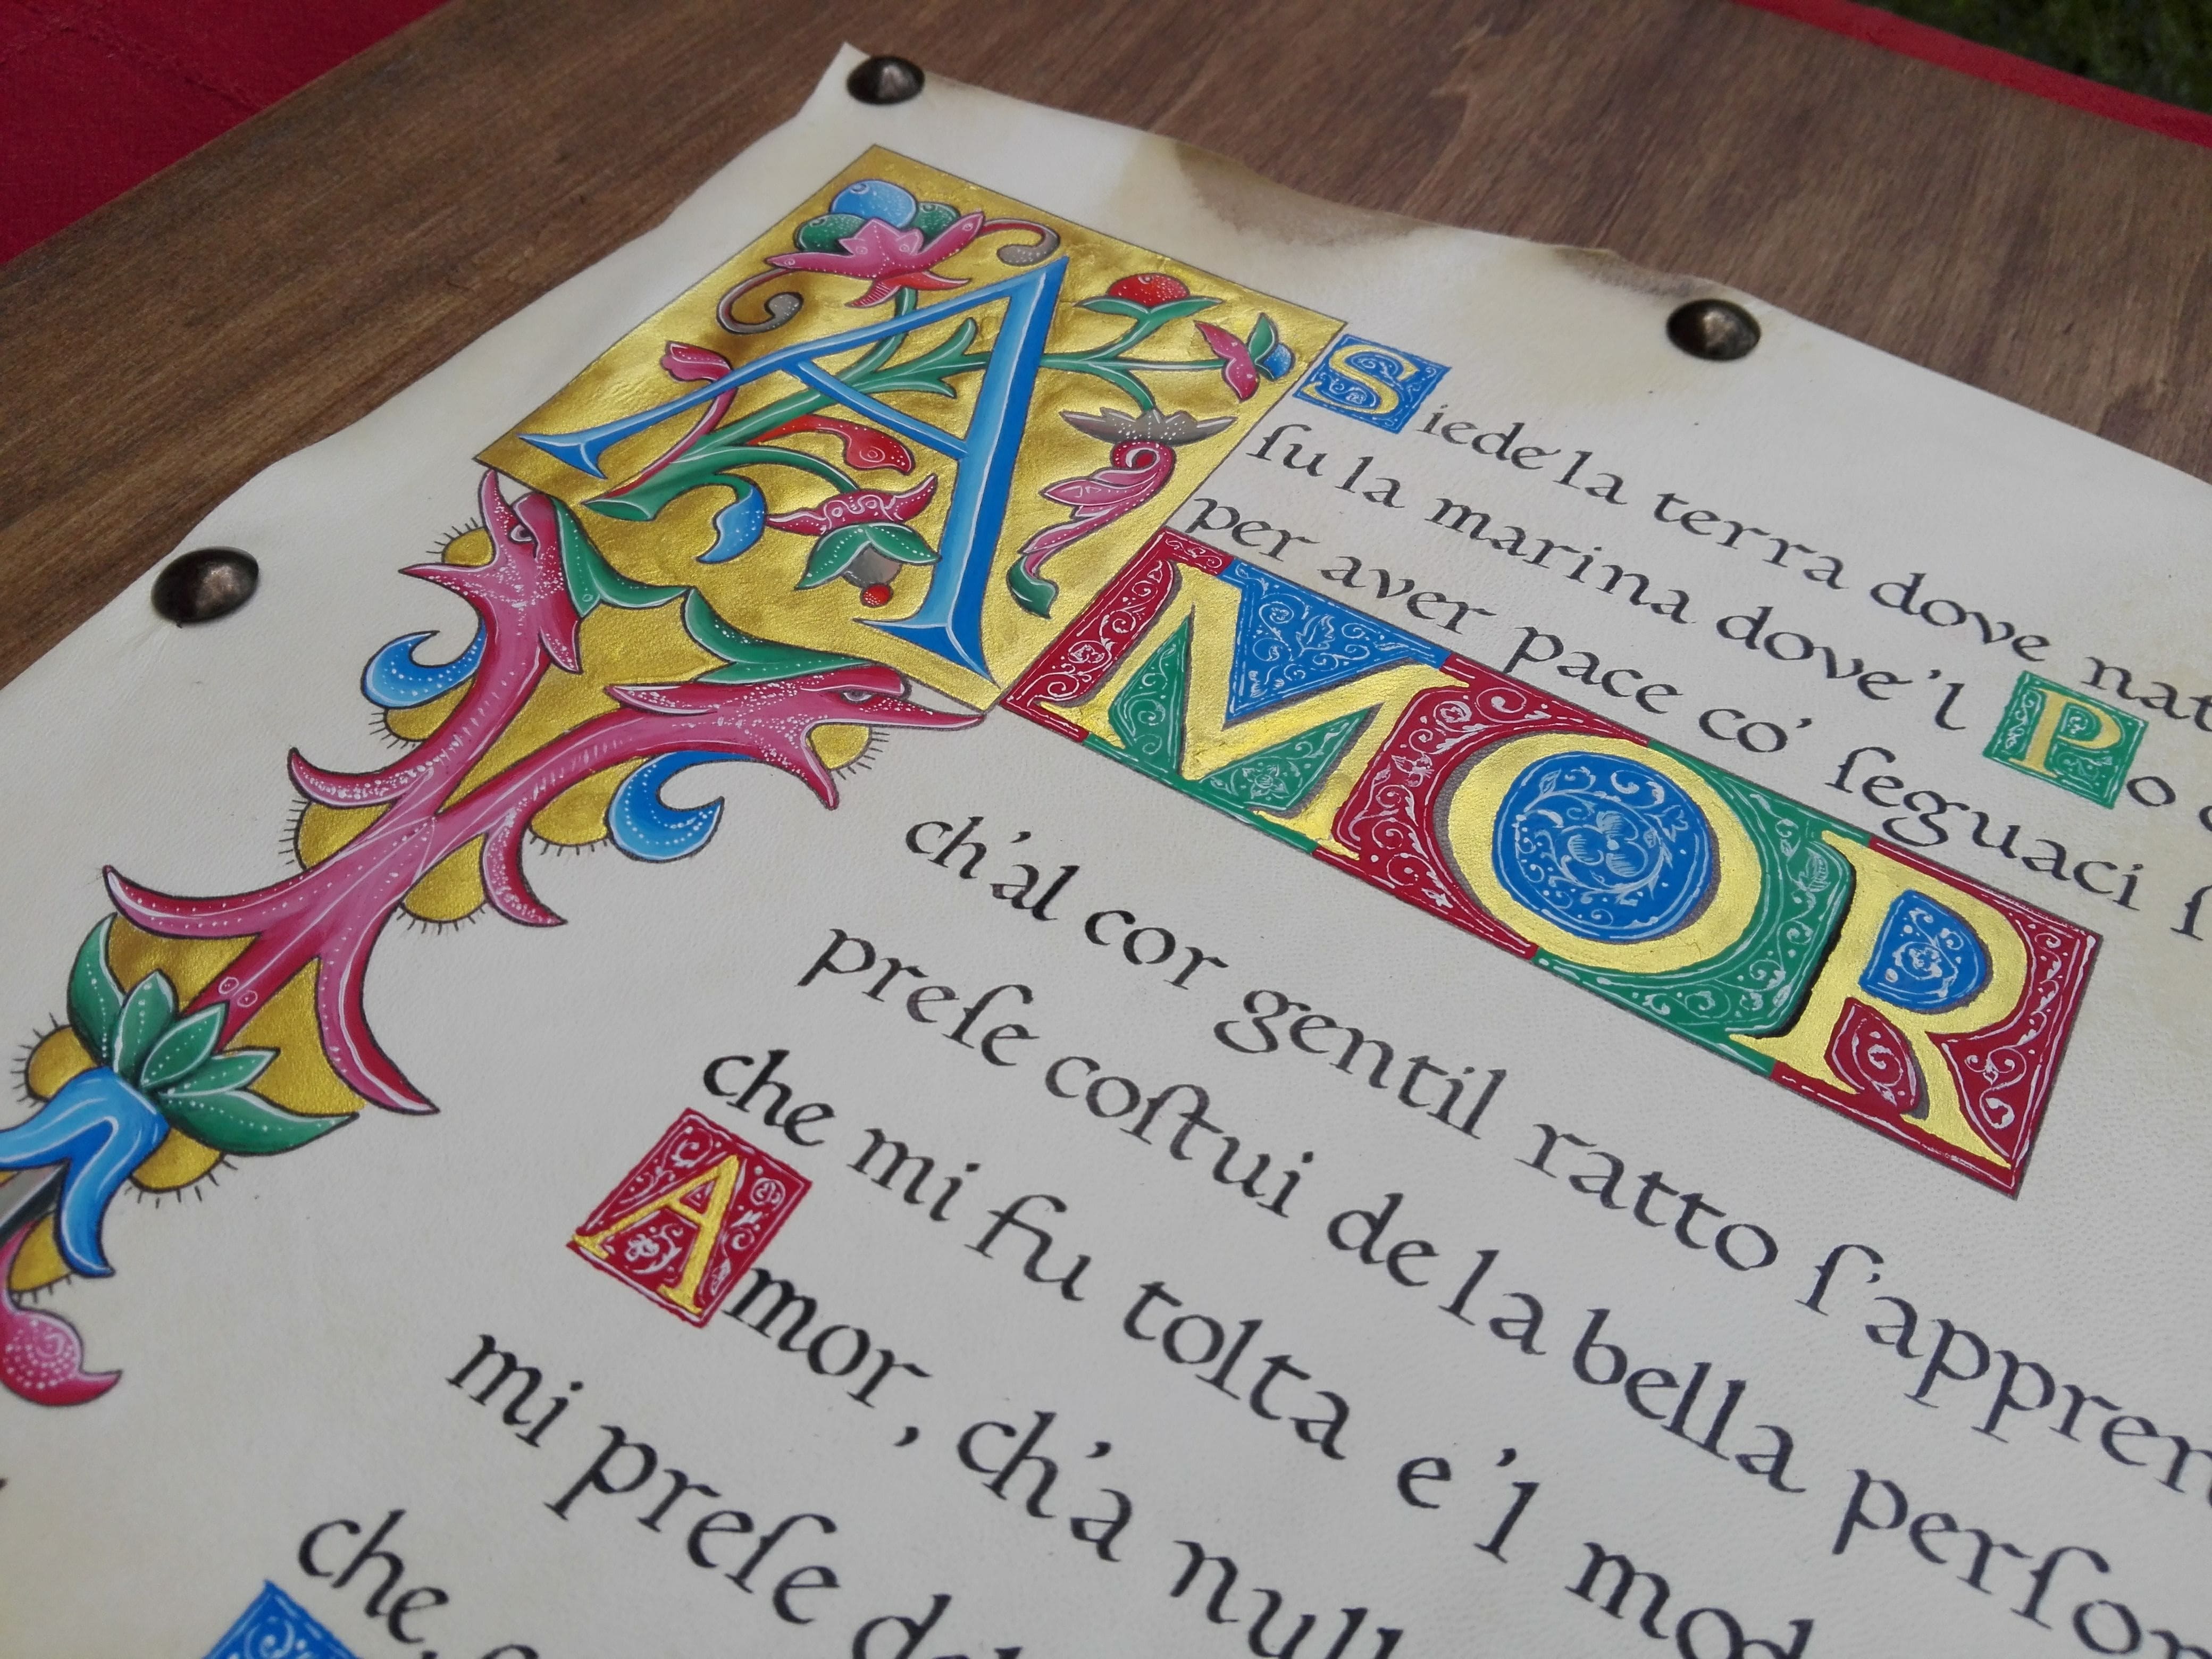 Siede la terra dove
ſu la marina dove'l Po
per aver pace co' ſeguaci
AMOR
ch'al cor gentil ratto ſ'appren
preſe coſtui de la bella
che mi fu tolta e'l
Amor, ch'a
mi preſe
che